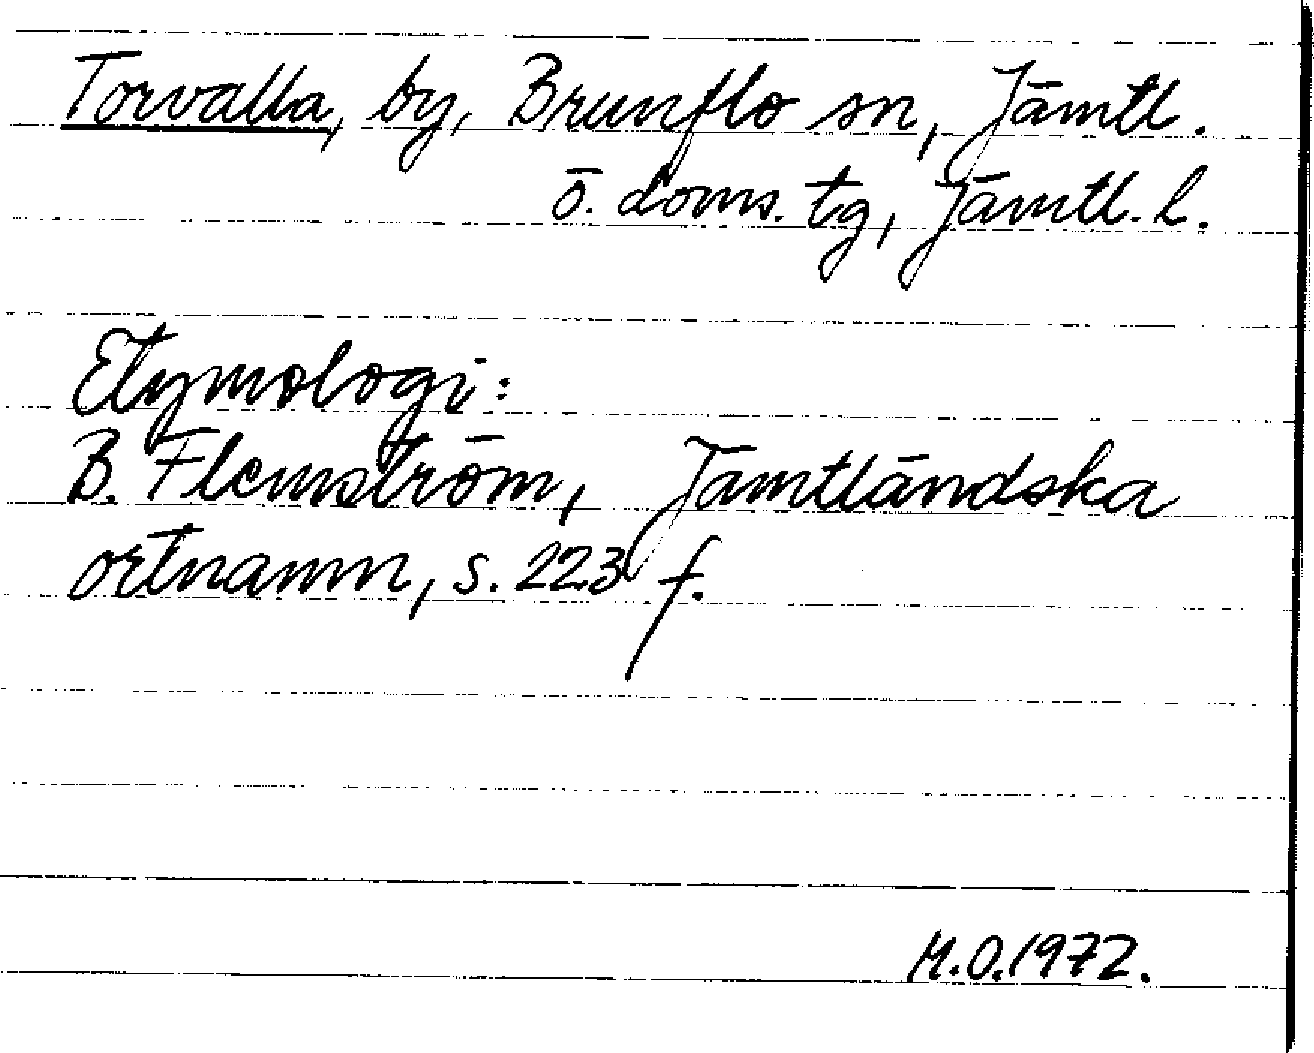 Torvalla, by, Brunflo sn, Jämtl.
ö. doms. tg, Jämtl. l.
Etymologi:
B. Flemström, Jämtländska
ortnamn, s. 223 f.
M.O. 1972.